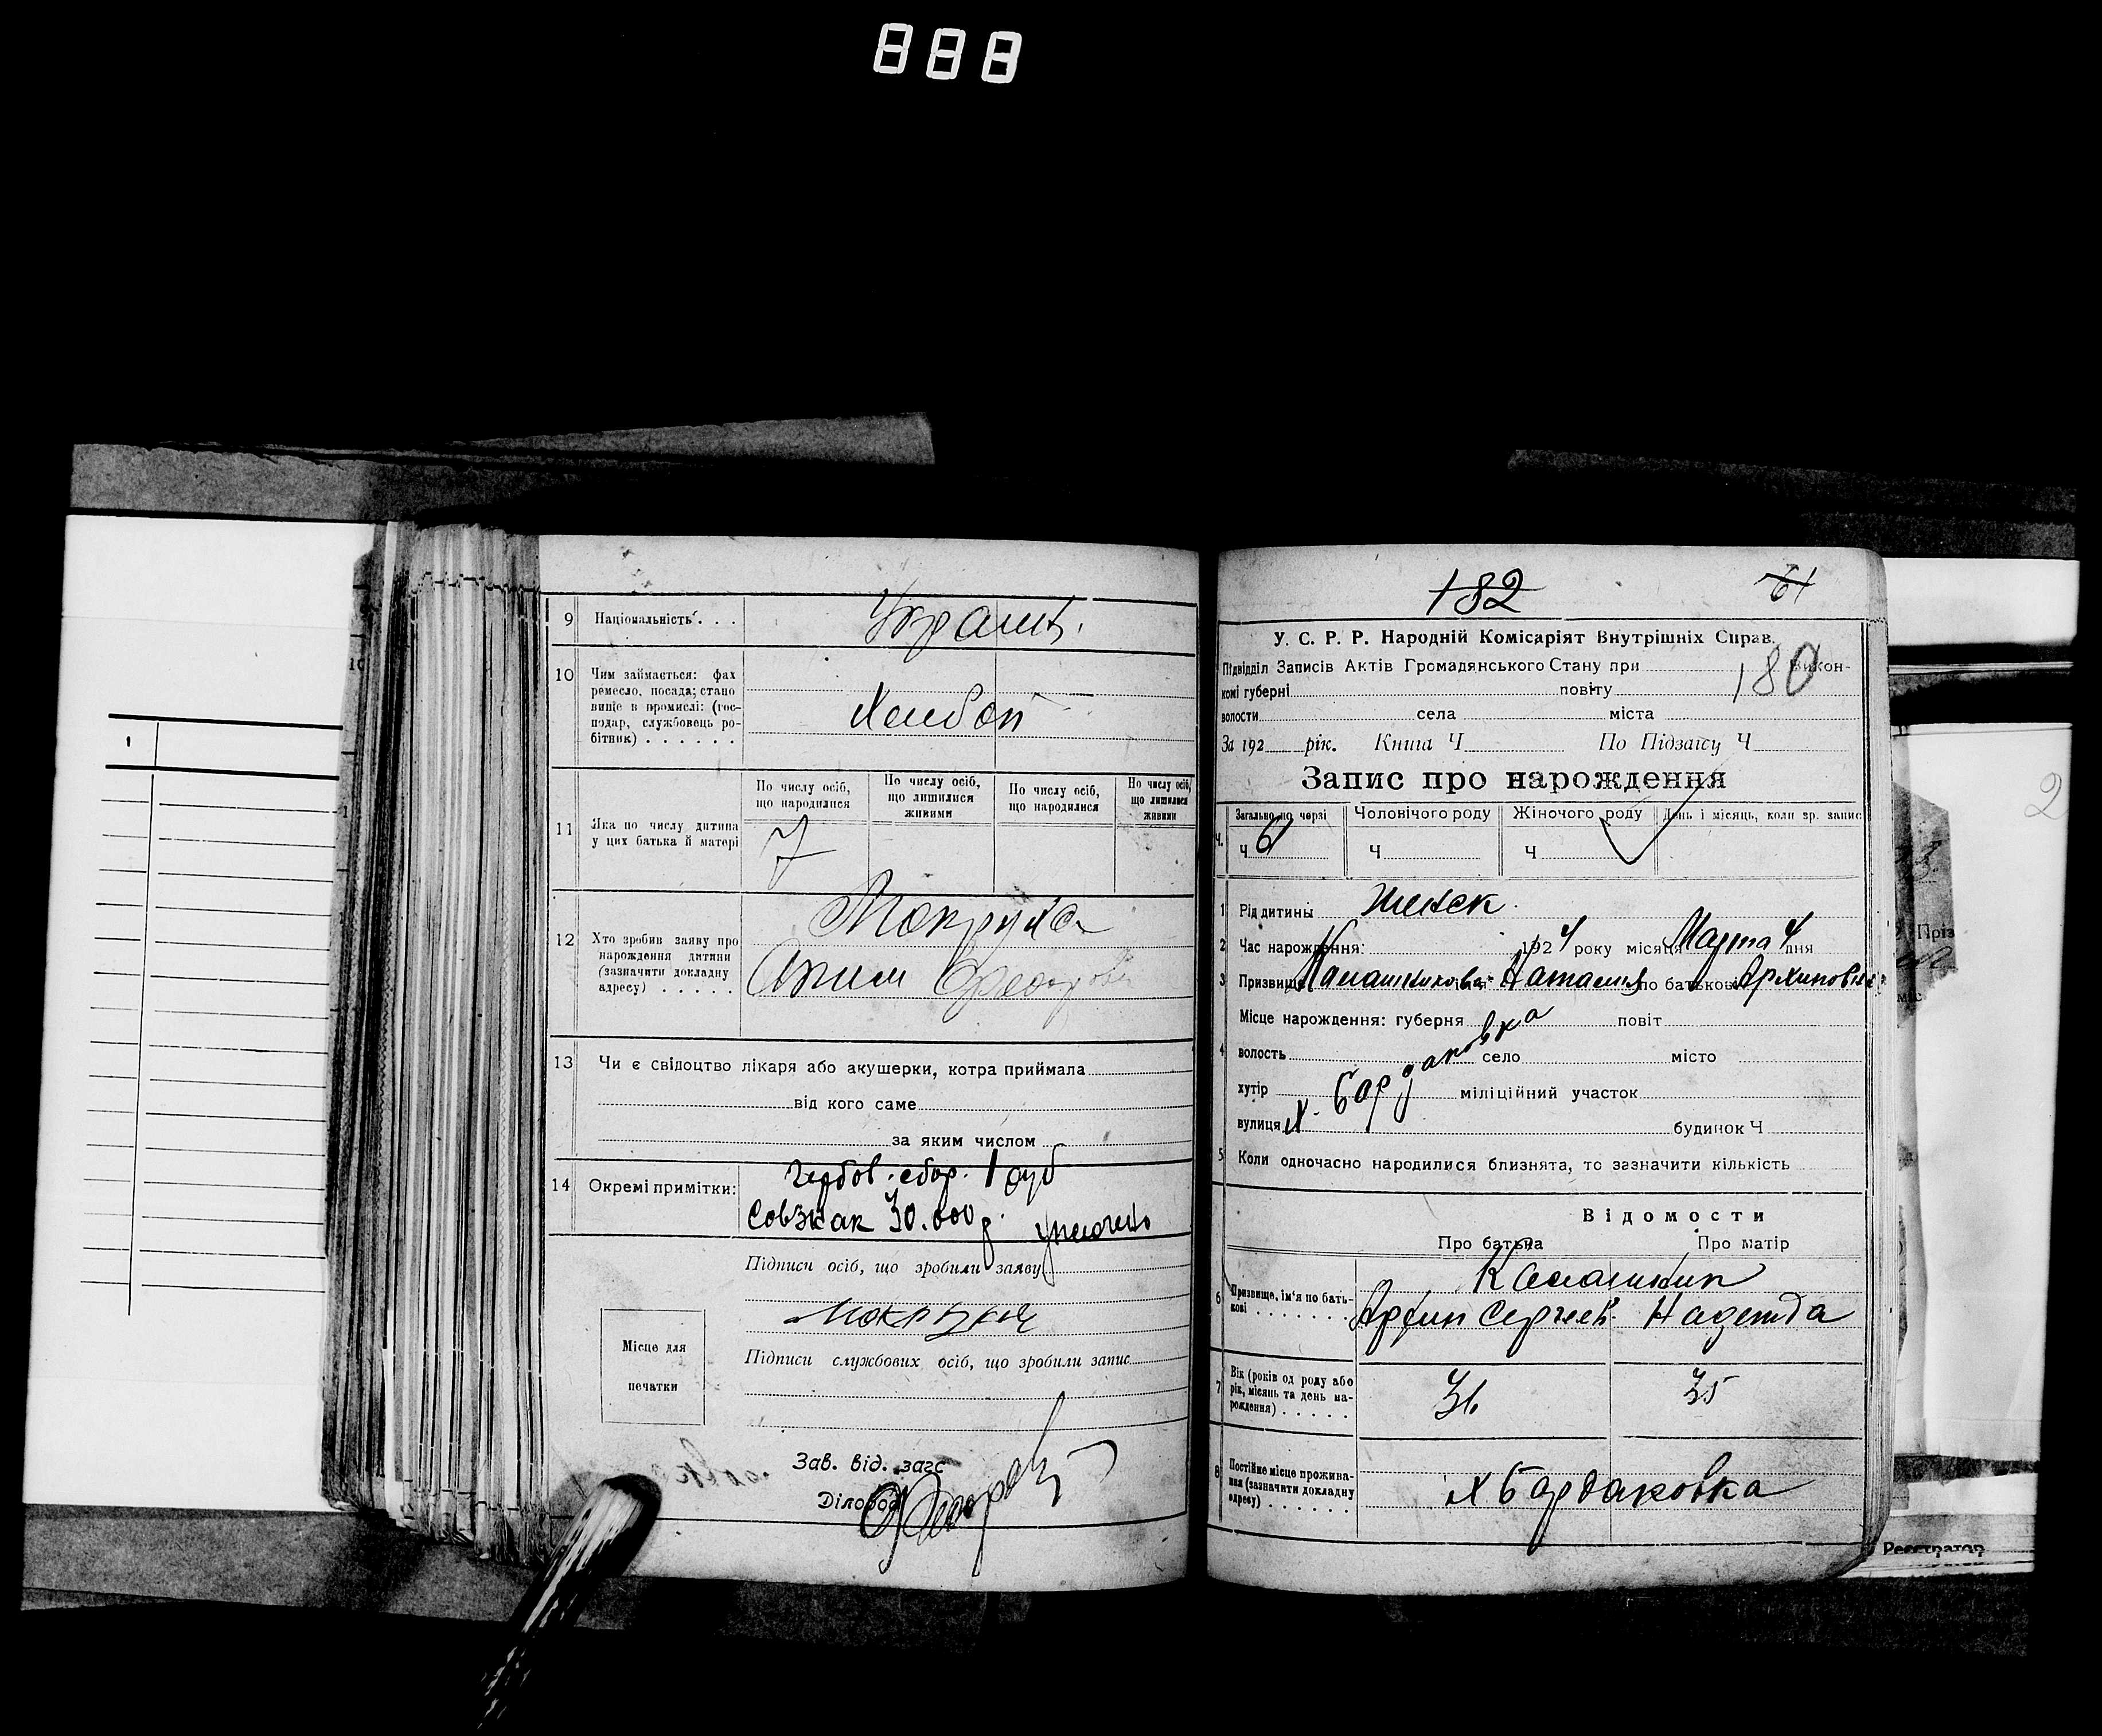 888
9 Національність . . . Украин.
10 Чим займається: фах
ремесло, посада; стано
вище в промислі: (гос-
подар, службовець ро-
бітник) . . . . . .
Хлебоп
11 Яка по числу дитина
у цих батька й матері
По числу осіб,
що народилися
По числу осіб,
що лишилися
живими
По числу осіб,
що народилися
По числу осіб,
що лишилися
живими
7
12 Хто зробив заяву про
нарождення дитини
(зазначити докладну
адресу) . . . . .
13 Чи є свідоцтво лікаря або акушерки, котра приймала
від кого саме
за яким числом
14 Окремі примітки:
гербов. сбор. 1 руб
Совзнак 30.000 р.
Підписи осіб, що зробили заяву
Місце для
печатки
Підписи службових осіб, що зробили запис
Зав. від. загс
Діловод
182 61
У. С. Р. Р. Народній Комісаріят Внутрішніх Справ.
Підвідділ Записів Актів Громадянського Стану при Викон-
комі губерні повіту 180
волости села міста
За 192 рік. Книга Ч По Підзагсу Ч
Запис про нарождення
Ч. Загально по черзі Чоловічого роду Жіночого роду День і місяць, коли зр. запис
Ч 61 Ч Ч
1 Рід дитини женск.
2 Час нарождення: 1924 року місяця Марта 4 дня
3 Призвище Калашникова Наталия по батькові Архиповна
4 Місце нарождення: губерня повіт
волость село місто
хутір міліційний участок
вулиця х. Бардаковка будинок Ч
5 Коли одночасно народилися близнята, то зазначити кількість
Відомости
Про батька Про матір
6 Призвище, ім'я по бать-
кові . . . . . .
Калашник
Архип Сергеев. Надежда
7 Вік (років од роду або
рік, місяць та день на-
рождення) . . . . .
36 35
8 Постійне місце прожива-
ння (зазначити докладну
адресу) . . . . .
х Бардаковка
2
Приз
Реєстратор